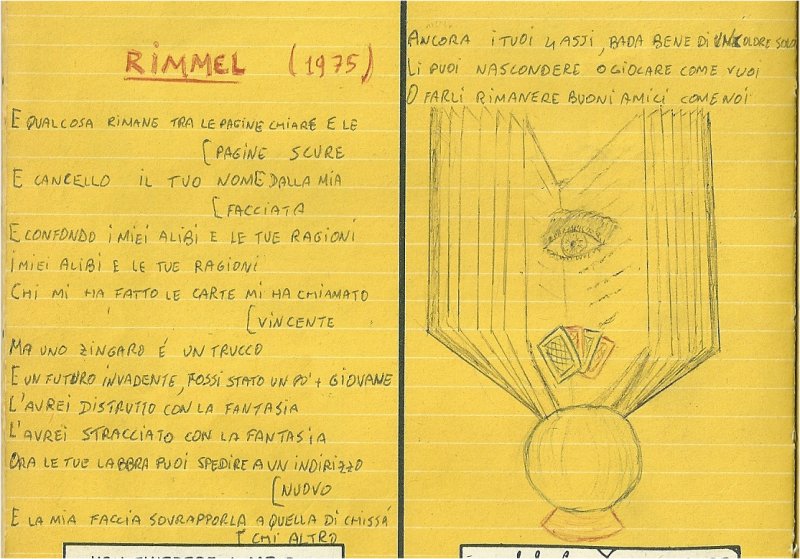 RIMMEL (1975)
E QUALCOSA RIMANE TRA LE PAGINE CHIARE E LE
[PAGINE SCURE
E CANCELLO IL TUO NOME DALLA MIA
[FACCIATA
E CONFONDO I MIEI ALIBI E LE TUE RAGIONI
I MIEI ALIBI E LE TUE RAGIONI
CHI MI HA FATTO LE CARTE MI HA CHIAMATO
[VINCENTE
MA UNO ZINGARO É UN TRUCCO
E UN FUTURO INVADENTE, FOSSI STATO UN PO' + GIOVANE
L'AVREI DISTRUTTO CON LA FANTASIA
L'AVREI STRACCIATO CON LA FANTASIA
ORA LE TUE LABBRA PUOI SPEDIRE A UN INDIRIZZO
[NUOVO
E LA MIA FACCIA SOVRAPPORLA A QUELLA DI CHISSÁ
[CHI ALTRO
ANCORA I TUOI 4 ASSI, BADA BENE DI UN COLORE SOLO
LI PUOI NASCONDERE O GIOCARE COME VUOI
O FARLI RIMANERE BUONI AMICI COME NOI